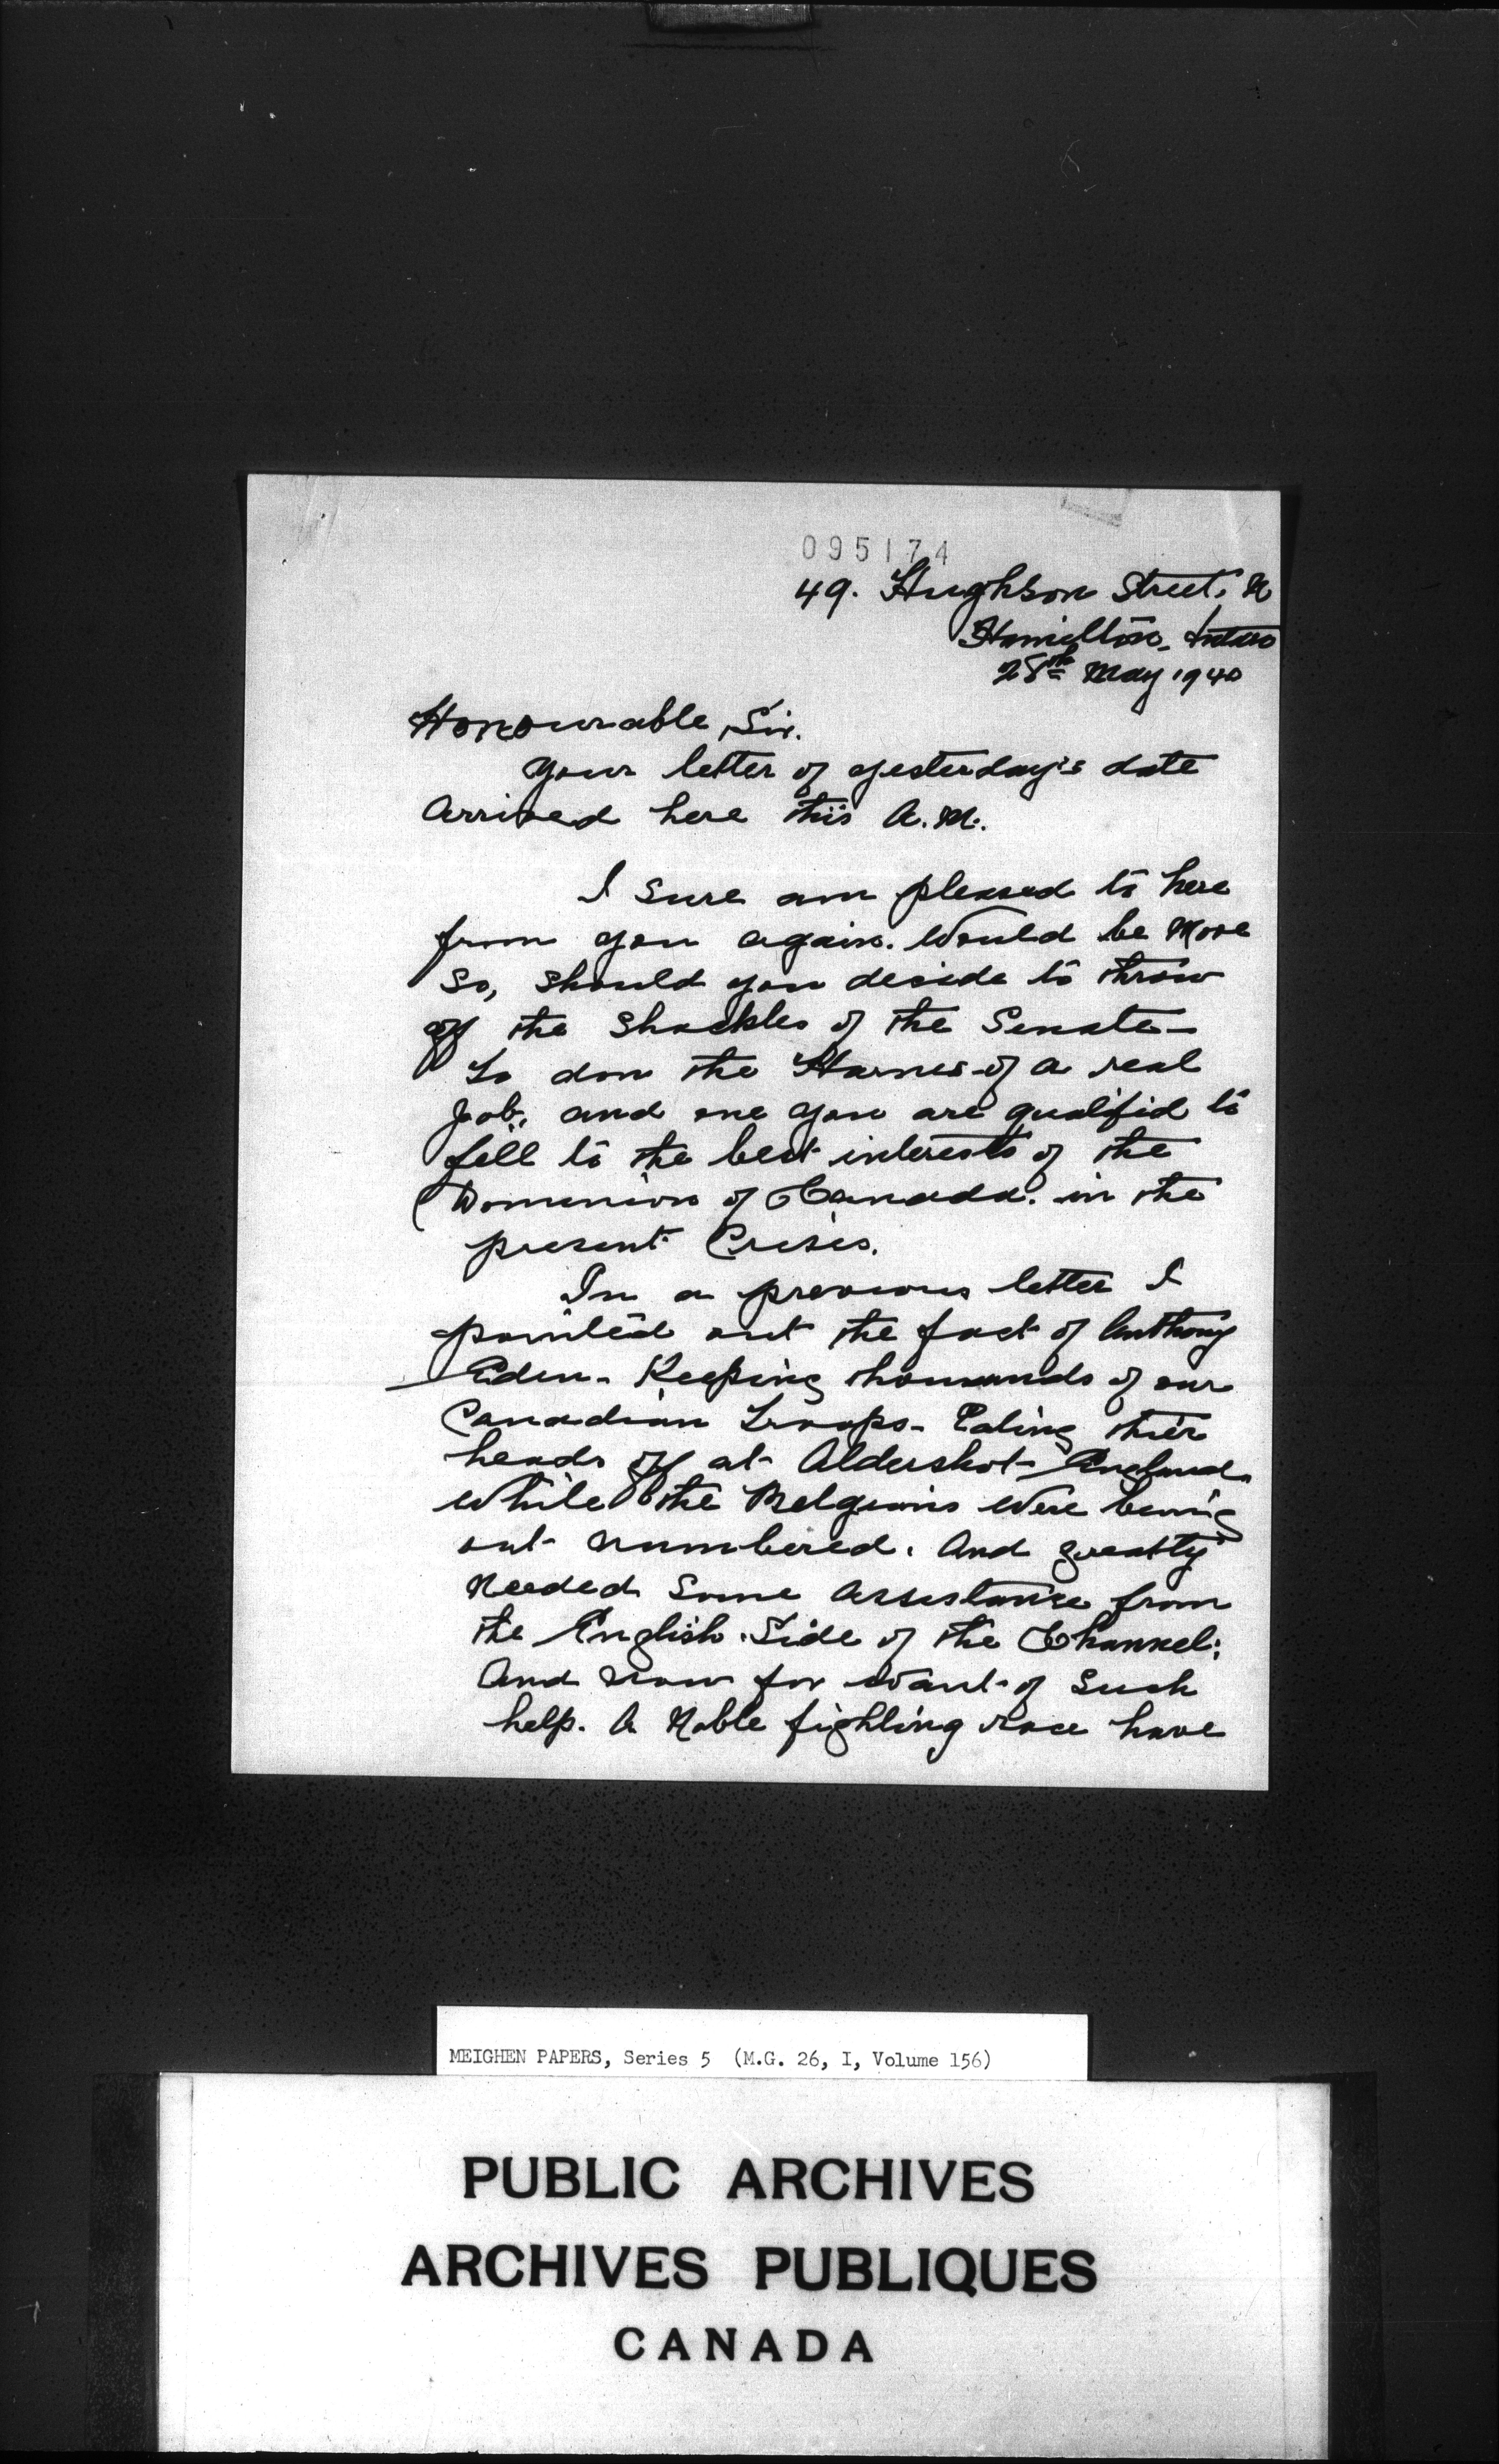 095174
49. Hughson Street, N
Hamilton, Ontario
28th May 1940
Honourable Sir.
Your letter of yesterday's date
arrived here this A.M.
I sure am pleased to here
from you again. Would be more
so, should you decide to throw
off the shackles of the Senate-
To don the Harnes of a real
job, and one you are qualifid to
fill to the best interests of the
Dominion of Canada. in the
present Crisis.
In a previous letter I
pointed out the fact of Anthony
Eden- Keeping thousands of our
Canadian Troops- Eating thier
heads off at Aldershot England
while the Belgians were being
out numbered. And greatly
needed some assistance from
the English Side of the Channel;
And now for want of such
help. A Noble fighting race have
MEIGHEN PAPERS, Series 5 (M.G. 26, I, Volume 156)
PUBLIC ARCHIVES
ARCHIVES PUBLIQUES
CANADA